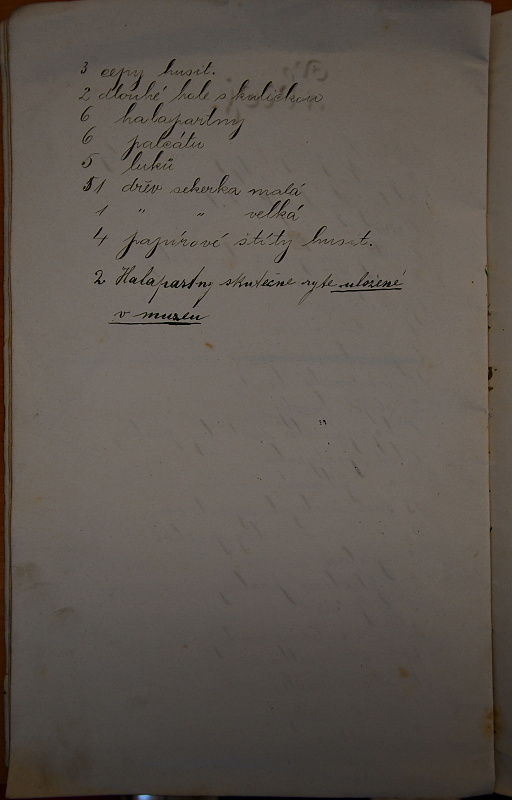 3 cepy husit.
2 dlouhé hole s kuličkou
6 halapartny
6 palcátu
5 luků
1 dřev sekerka malá
1 " " velká
4 papírové štíty husit.
2 Halapartny skutečné ryté uložené
v museu